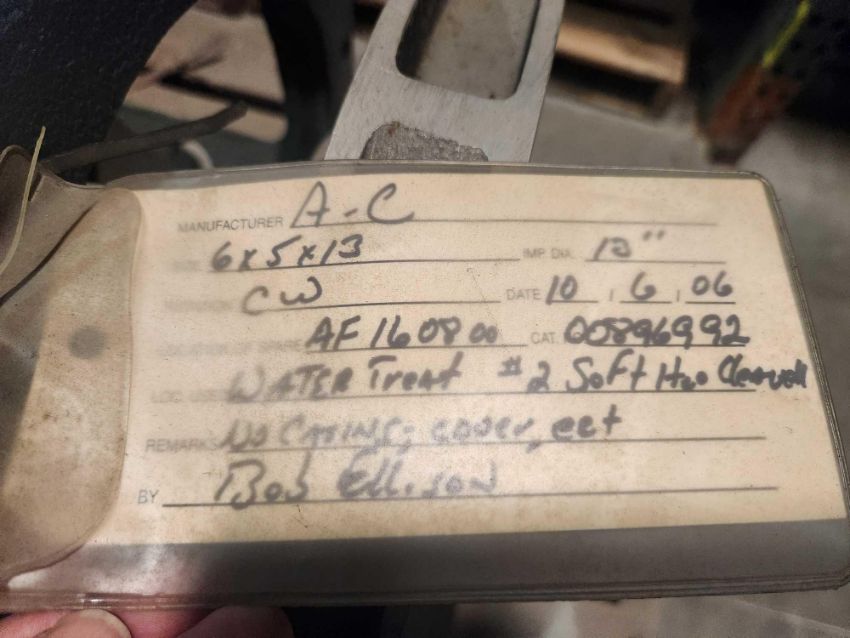 MANUFACTURER A-C
6x5x13 IMP. DIA. 13"
CW DATE 10, 6, 06
AF 160800 CAT. 00896992
LOC. USED WATER Treat #2 Soft H2O Clearwell
REMARKS NO CASING, cover, ect
BY Bob Ellison